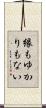 縁もゆか
りもない